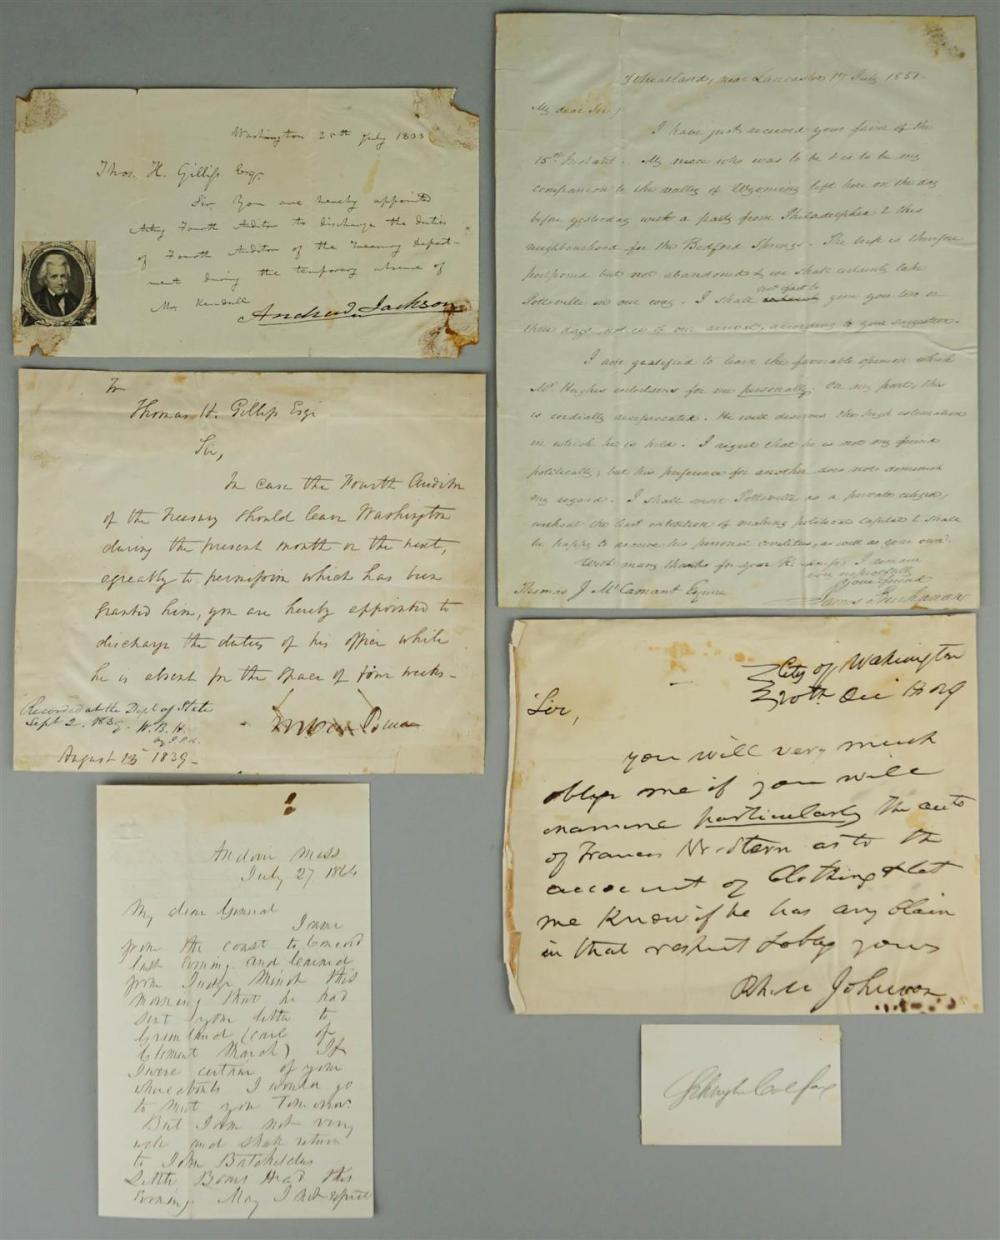 Washington 25th July 1833
Thos. H. Gilliss Esqr.
Sir, You are hereby appointed
Acting Fourth Auditor to discharge the duties
of Fourth Auditor of the Treasury Depart-
ment during the temporary absence of
Mr. Kendall
Andrew Jackson
Wheatland, near Lancaster 17 July 1851.
My dear Sir,
I have just received your favor of the
15th Instant. My niece who was to be & is to be my
companion to the valley of Wyoming left here on the day
before yesterday with a party from Philadelphia & this
neighbourhood for the Bedford Springs. The trip is therefore
postponed but not abandoned & we shall certainly take
Pottsville in our way. I shall
give you two or
three days notice of our arrival, according to your suggestion.
I am gratified to learn the favorable opinion which
Mr. Hughes entertains for me personally. On my part, this
is cordially reciprocated. He well deserves the high estimation
in which he is held. I regret that he is not my friend
politically; but his preference for another does not diminish
my regard. I shall visit Pottsville as a private citizen,
without the least intention of making political capital & shall
be happy to receive his personal civilities, as well as your own.
With many thanks for your I remain
very respectfully
Your friend
James Buchanan
Thomas J McCamant Esquire
To
Thomas H. Gilliss Esqr
Sir,
In case the Fourth Auditor
of the Treasury should leave Washington
during the present month or the next,
agreeably to permission which has been
granted him, you are hereby appointed to
discharge the duties of his office while
he is absent for the space of four weeks-
Recorded at the Dept of State
Sept 2. 1839. W. B. H.
August 13th 1839-
City of Washington
20th Dec 1809
Sir,
you will very much
oblige me if you will
examine particularly the acts
of Francis as to the
account of Clothing & let
me know if he has any claim
in that respect & oblige yours
Rh. M Johnson
Andover Mass
July 27 1864
My dear General
I came
from the coast to Concord
last Evening and learned
from Judge Minot this
morning that he had
sent your letter to
Greenland (care of
Clement March) If
I were certain of your
whereabouts I would go
to meet you tomorrow
But I am not very
well and shall return
to John Batchelders
Little Boars Head this
Evening. May I not expect
Schuyler Colfax